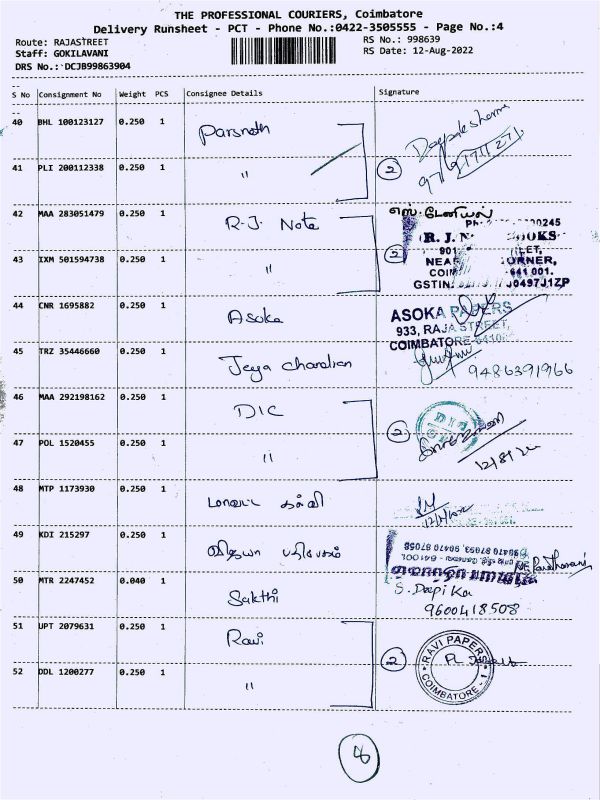 THE PROFESSIONAL COURIERS, Coimbatore
Delivery Runsheet - PCT - Phone No.:0422-3505555 - Page No.:4
Route: RAJASTREET
RS No.: 998639
Staff: GOKILAVANI
RS Date: 12-Aug-2022
DRS No.: DCJB99863904
S No Consignment No Weight PCS Consignee Details Signature
40 BHL 100123127 0.250 1 Parsnath
41 PLI 200112338 0.250 1 " 2
42 MAA 283051479 0.250 1 R.J. Note எஸ்.டேனியல்
43 IXM 501594738 0.250 1 " 2
R. J.
NEAR
GSTIN:
44 CNR 1695882 0.250 1 Asoka
ASOKA PAPERS
933, RAJA STREET,
COIMBATORE
45 TRZ 35446660 0.250 1 Jeya chandran 9486391966
46 MAA 292198162 0.250 1 DIC
47 POL 1520455 0.250 1 " 2
12/8/22
48 MTP 1173930 0.250 1
49 KDI 215297 0.250 1
50 MTR 2247452 0.040 1 Sakthi
S. Deepika
9600418508
51 UPT 2079631 0.250 1 Ravi
52 DDL 1200277 0.250 1 " 2
RAVI PAPERS
COIMBATORE - 1
8